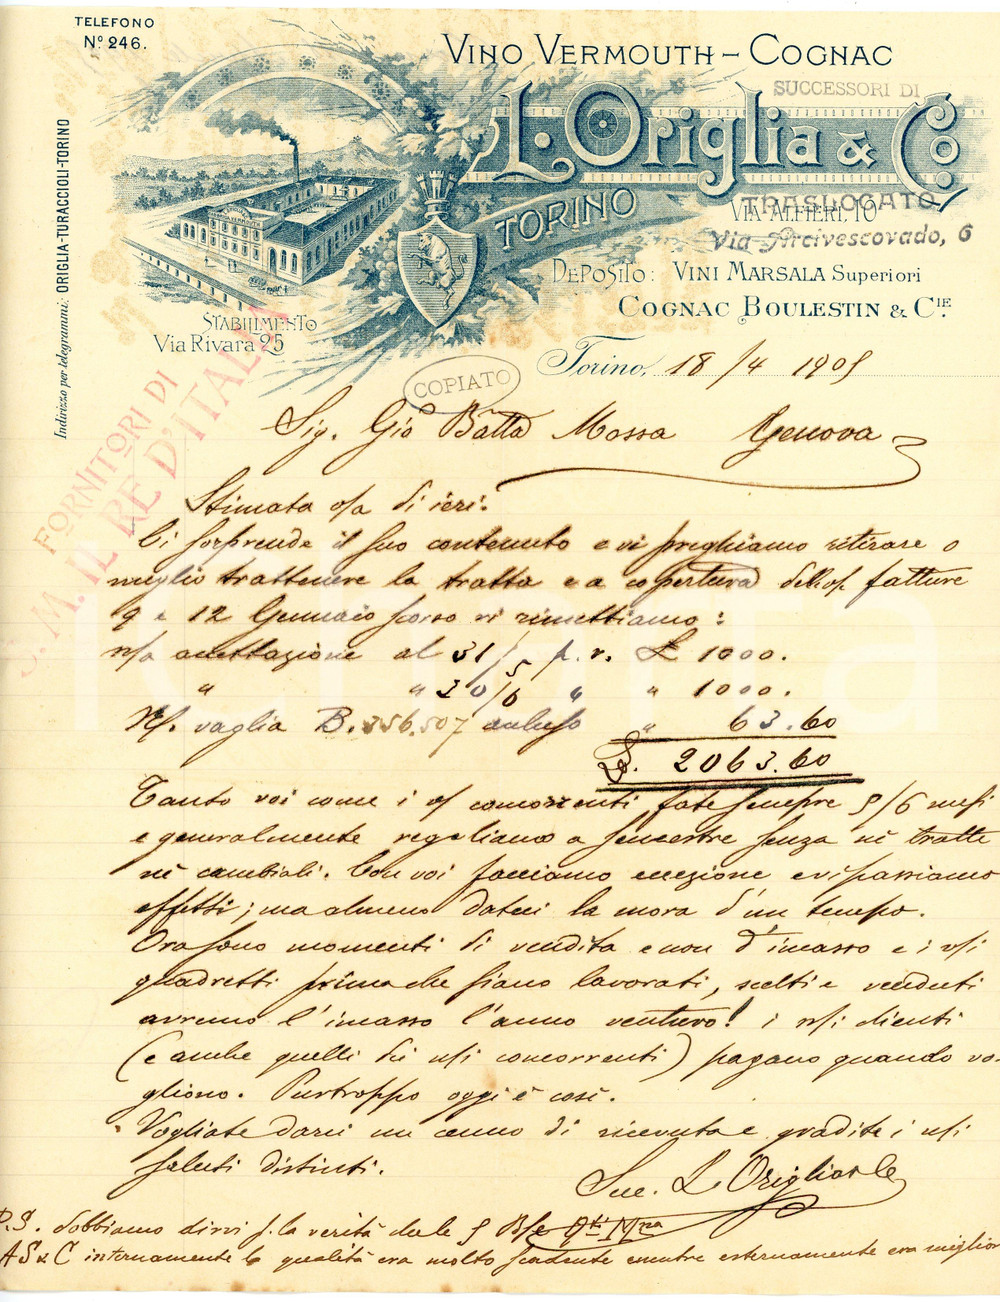 TELEFONO
Nº 246.
VINO VERMOUTH – COGNAC
SUCCESSORI DI
L. Origlia & Cº
TORINO
VIA ALFIERI, 10
TRASLOCATO
Via Arcivescovado, 6
DEPOSITO: VINI MARSALA Superiori
COGNAC BOULESTIN & CIE.
STABILIMENTO
Via Rivara 25
Indirizzo per telegrammi: ORIGLIA-TURACCIOLI-TORINO
FORNITORI DI
S.M. IL RE D'ITALIA
COPIATO
Torino, 18/4 1905
Sig. Gio Batta Mossa Genova
Stimata v/a di ieri.
Ci sorprende il suo contenuto e vi preghiamo ritirare o
meglio trattenere la tratta e a copertura fatture
9 e 12 Gennaio scorso vi rimettiamo:
n/a accettazione al 31/5 p. v. £ 1000.
" " 30/6 " " 1000.
N/. vaglia B. 356.507 accluso " 63.60
£. 2063.60
Tanto voi come i v/ concorrenti fate sempre 5/6 mesi
e generalmente regoliamo a semestre senza nè tratte
nè cambiali. Con voi facciamo eccezione e vi passiamo
effetti; ma almeno dateci la mora d'un tempo.
Ora sono momenti di vendita e non d'incasso e i v/i
quadretti prima che siano lavorati, scelti e venduti
avremo l'incasso l'anno venturo! i n/i clienti
(e anche quelli dei n/i concorrenti) pagano quando vo-
gliono. Purtroppo oggi è così.
Vogliate darci un cenno di ricevuta e gradite i n/i
saluti distinti.
Suc. L Origlia & C
P.S. dobbiamo dirvi p. la verità che le 5 B/e
AS&C internamente la qualità era molto scadente mentre esternamente era miglior